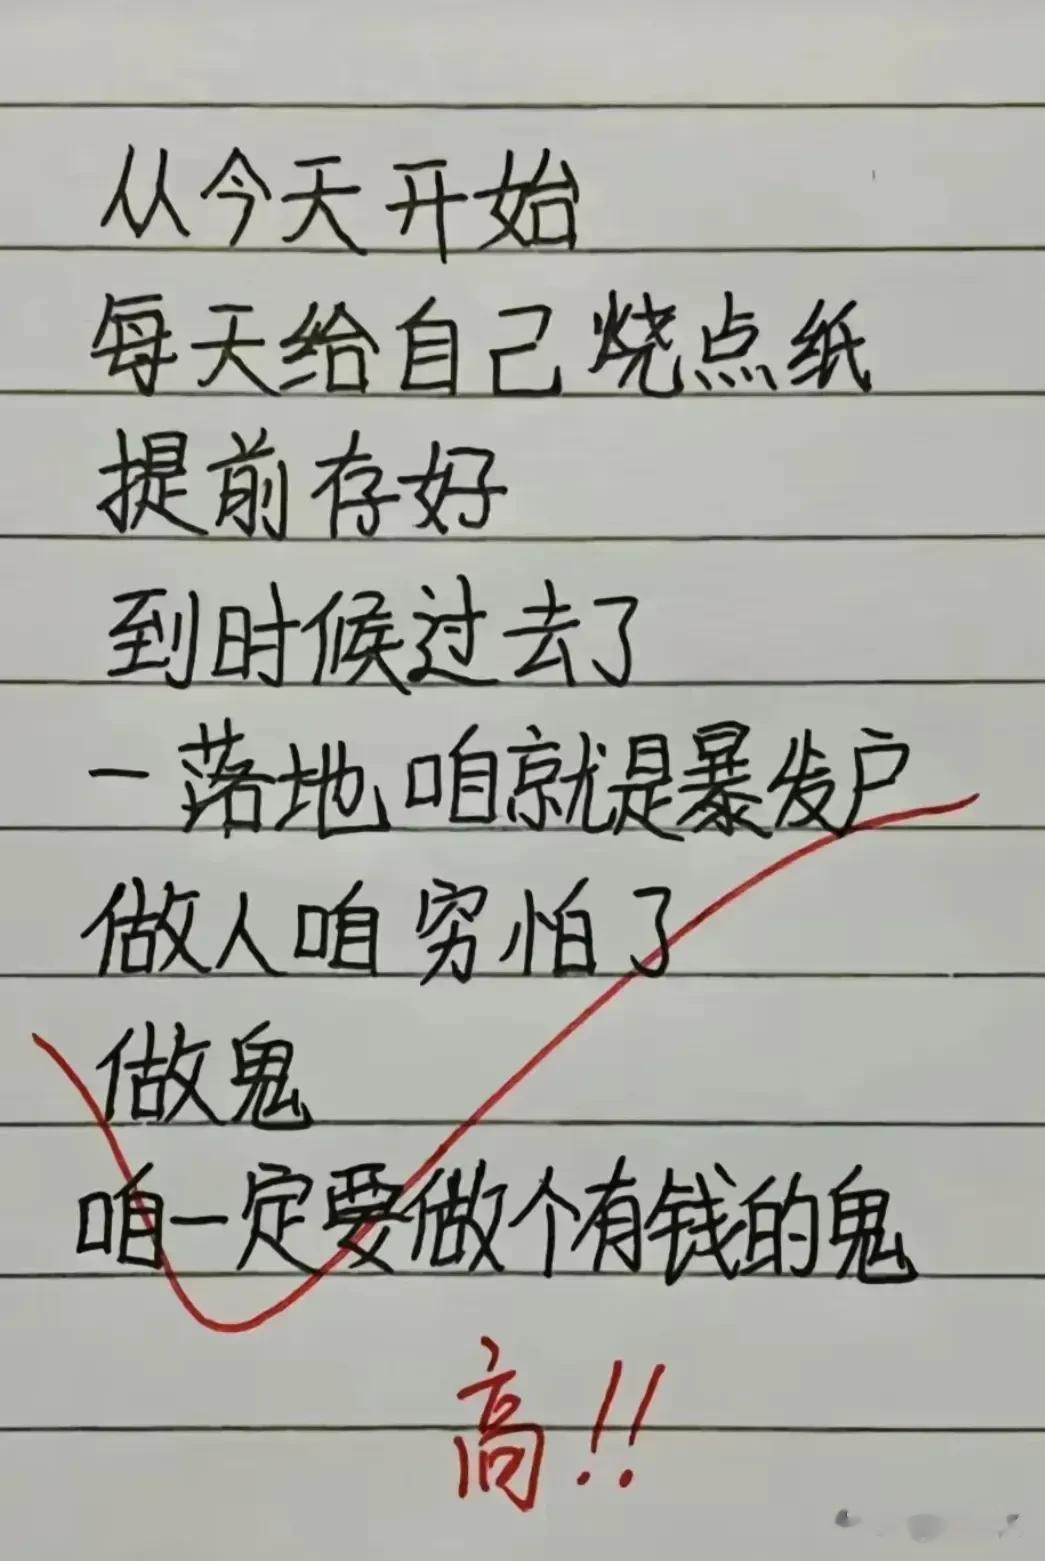 从今天开始
每天给自己烧点纸
提前存好
到时候过去了
一落地咱就是暴发户
做人咱穷怕了
做鬼
咱一定要做个有钱的鬼
高!!